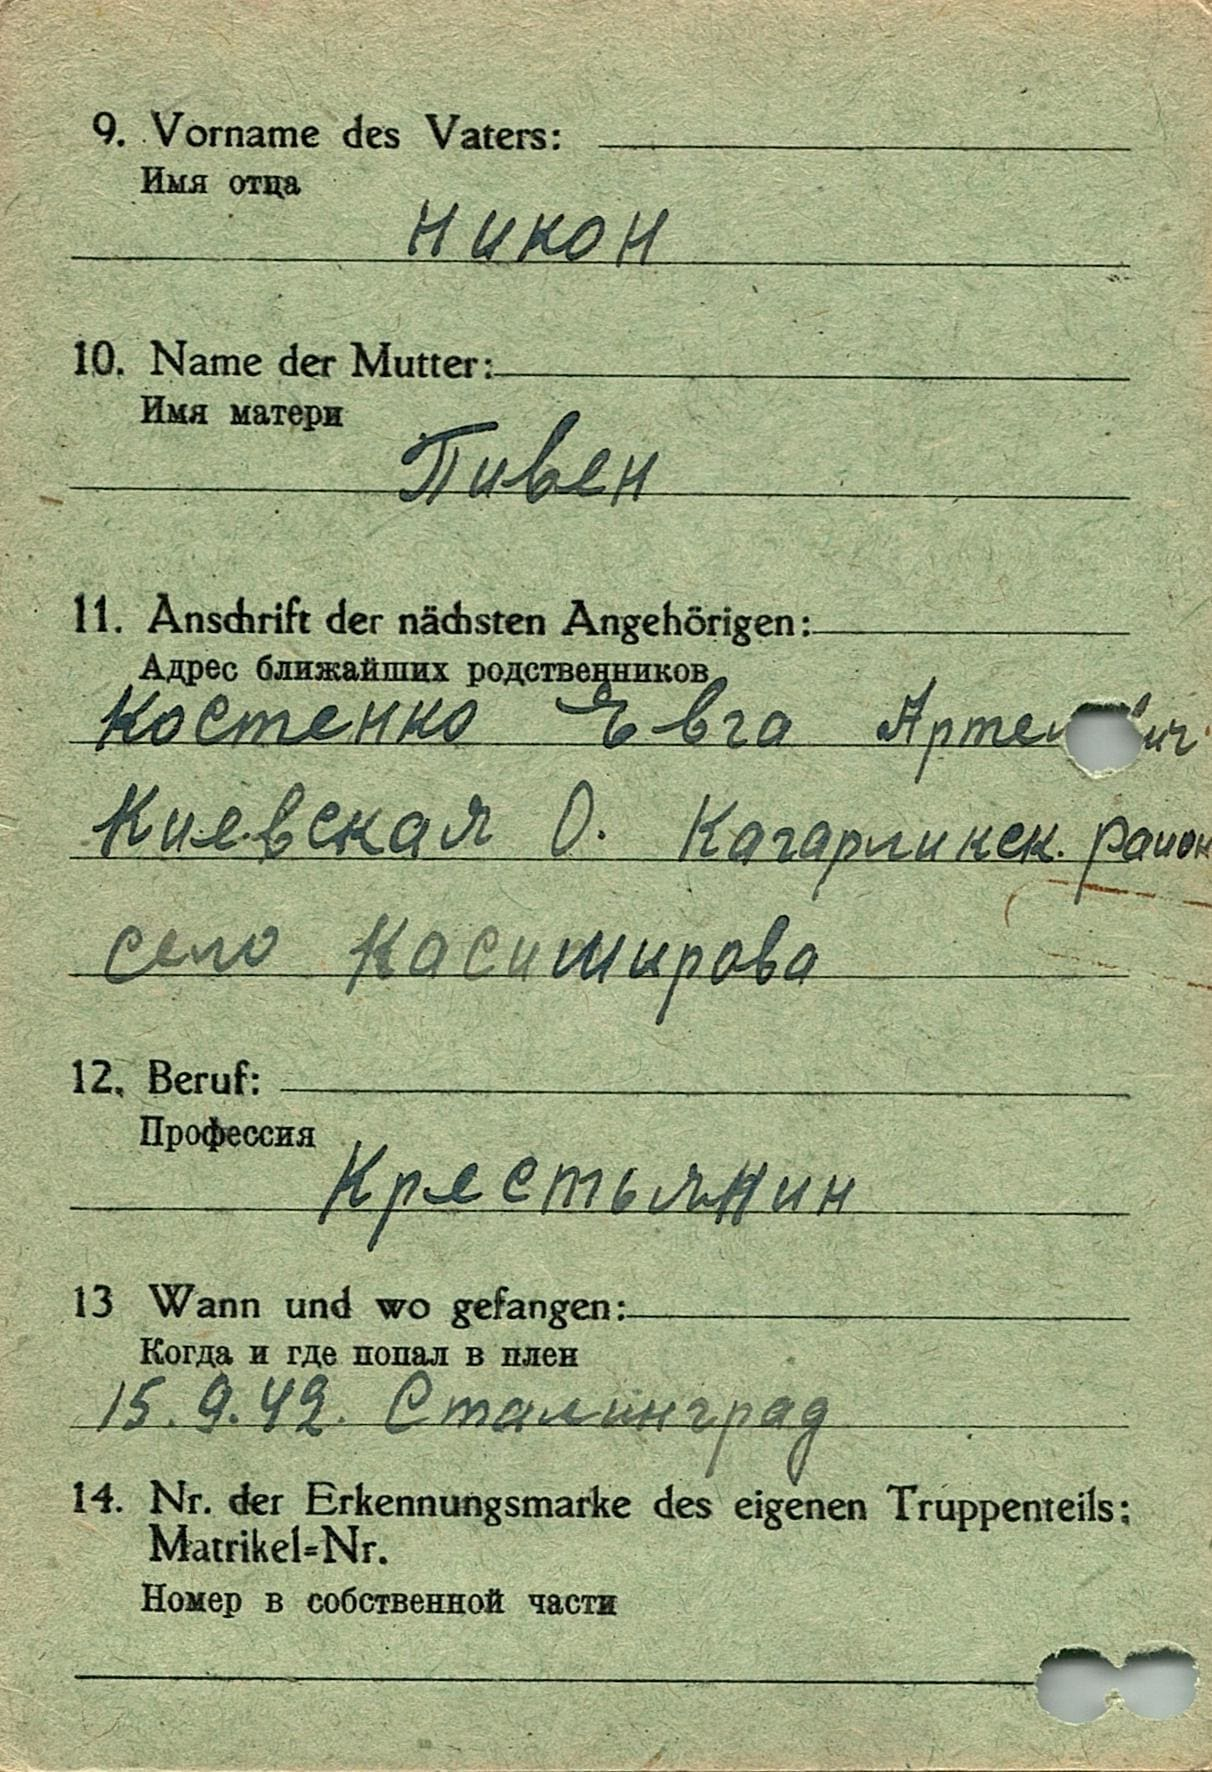 9. Vorname des Vaters:
Имя отца
Никон
10. Name der Mutter:
Имя матери
Пивен
11. Anschrift der nächsten Angehörigen:
Адрес ближайших родственников
Костенко Евга
Киевская О. Кагарликск. район
село Касимирова
12. Beruf:
Профессия
Крестьянин
13 Wann und wo gefangen:
Когда и где попал в плен
15.9.42. Сталинград
14. Nr. der Erkennungsmarke des eigenen Truppenteils:
Matrikel=Nr.
Номер в собственной части